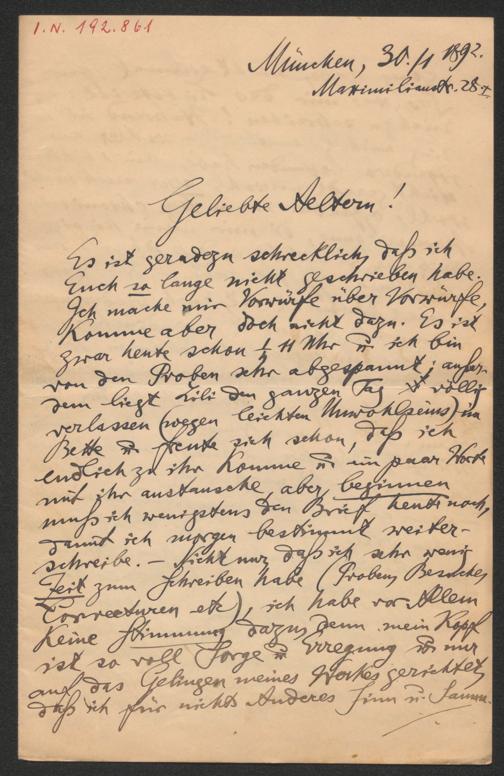 I.N. 192.861
München, 30./1 1892.
Maximilianstr. 28 I
Geliebte Aeltern!
Es ist geradezu schrecklich, daß ich
Euch so lange nicht geschrieben habe.
Ich mache mir Vorwürfe über Vorwürfe,
Komme aber doch nicht dazu. Es ist
zwar heute schon ½ 11 Uhr u ich bin
von den Proben sehr abgespannt; außer-
dem liegt Lili den ganzen Tag völlig
verlassen (wegen leichten Unwohlseins) im
Bette u freute sich schon, daß ich
endlich zu ihr komme u ein paar Worte
mit ihr austausche, aber beginnen
muß ich wenigstens den Brief heute noch,
damit ich morgen bestimmt weiter-
schreibe. – Nicht nur, daß ich sehr wenig
Zeit zum Schreiben habe (Proben, Besuche,
Correcturen etc), ich habe vor Allem
Keine Stimmung dazu, denn mein Kopf
ist so voll Sorge u Erregung u nur
auf das Gelingen meines Werkes gerichtet,
daß ich für nichts Anderes Sinn u.